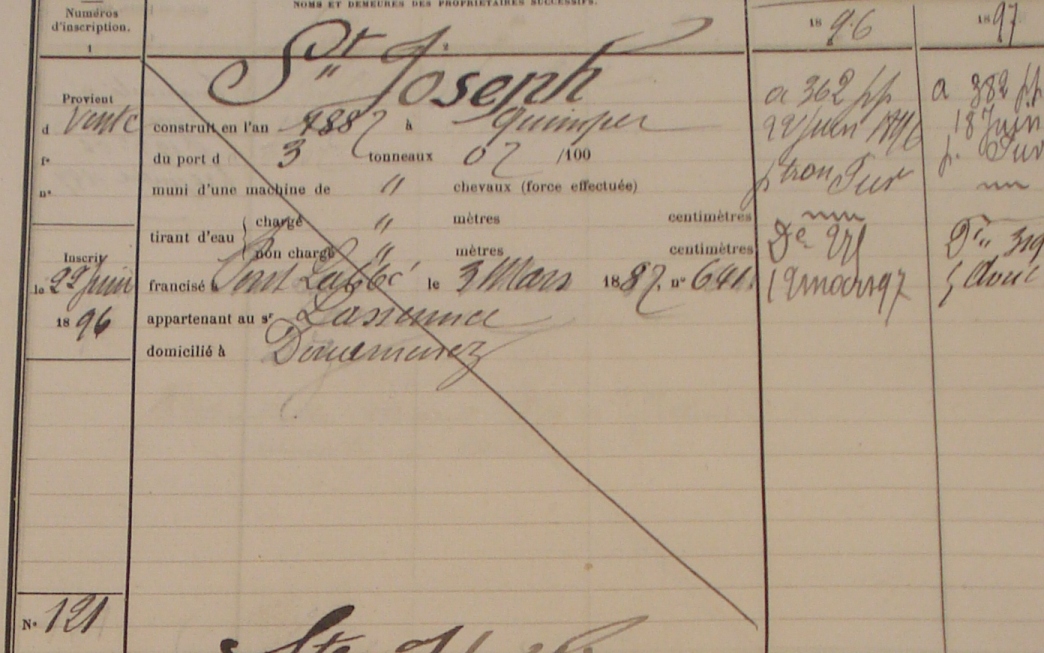 NOMS ET DEMEURES DES PROPRIÉTAIRES SUCCESSIFS.
Numéros
d'inscription.
1
1896
1897
St Joseph
Provient
d Vente
fo
no
construit en l'an 1887 à Quimper
du port d 3 tonneaux 07 /100
muni d'une machine de " chevaux (force effectuée)
tirant d'eau { chargé " mètres centimètres
non chargé " mètres centimètres
Inscrit
le 22 Juin
1896
francisé à Pont Labbé le 3 Mars 1887. no 641
appartenant au sr
domicilié à Douarnenez
a 362 pp
22 Juin 1896
De
12 mars 97
a 382 pp
18 Juin
Dt 319
5 Avril
No 121
Ste